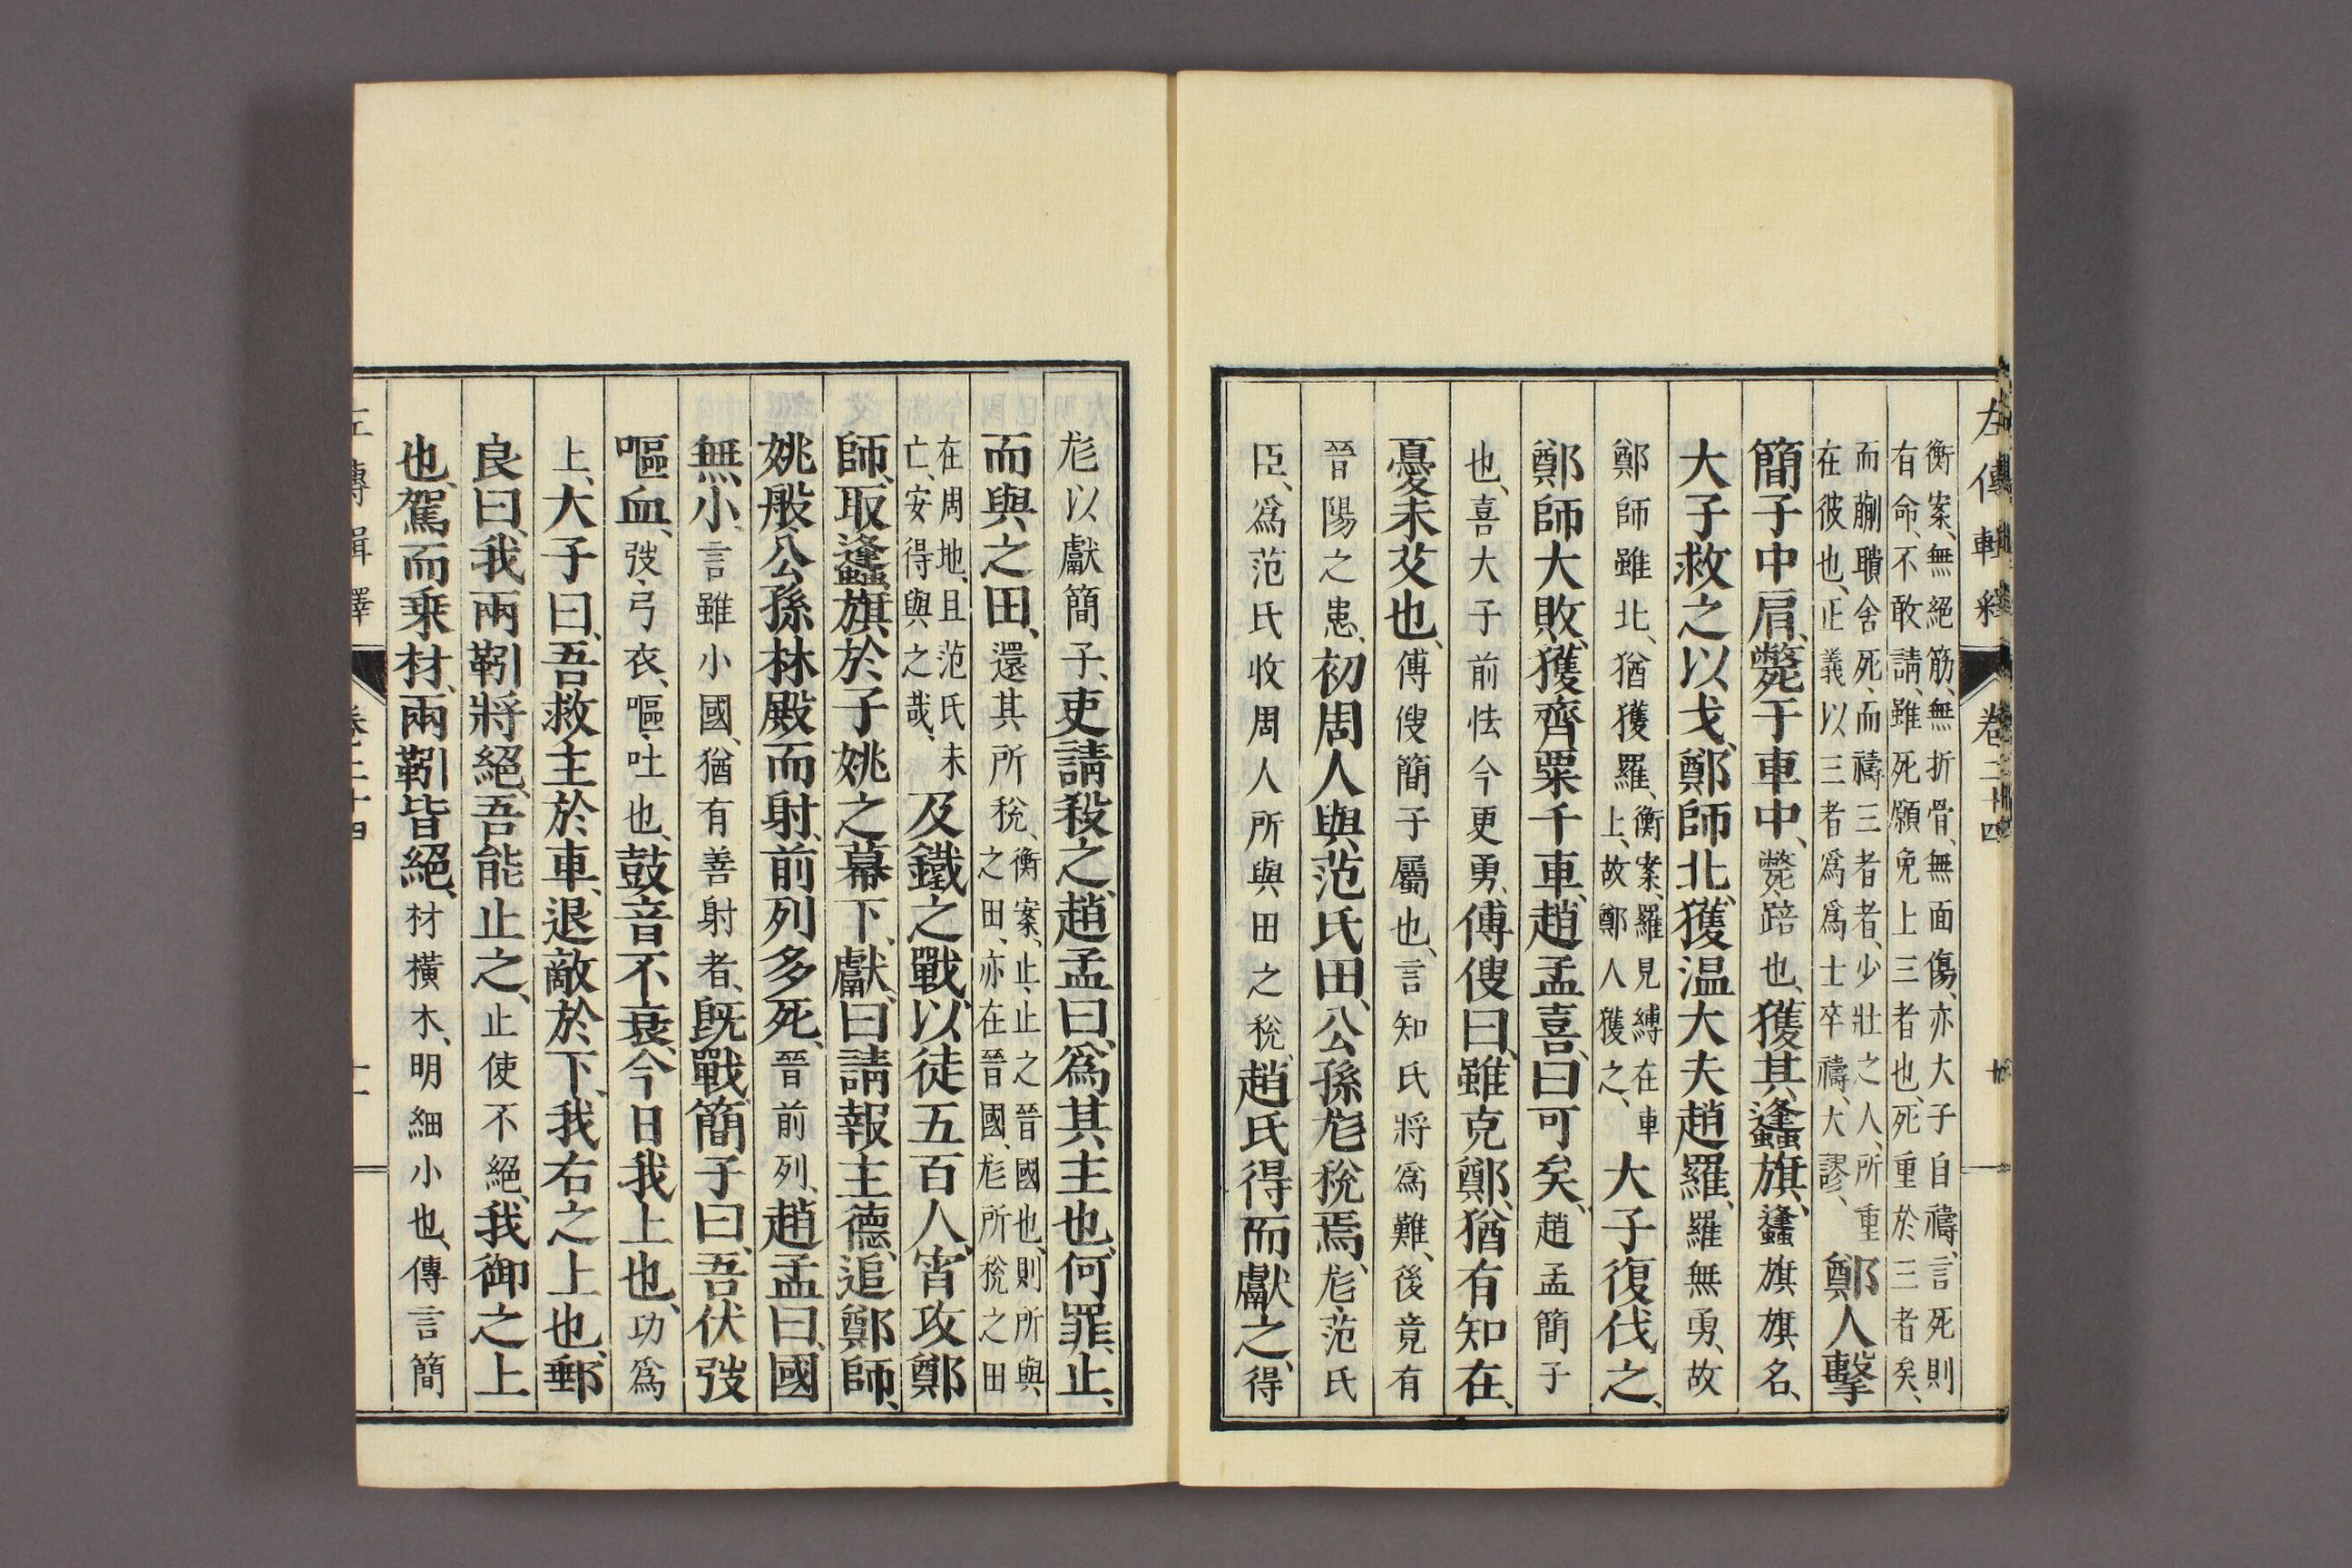 左傳輯釋 卷二十四
衡案、無絕筋、無折骨、無面傷、亦大子自禱、言死則
有命、不敢請、雖死願免上三者也、死重於三者矣、
而蒯聵舍死、而禱三者者、少壯之人、所重
在彼也、正義以三者爲爲士卒禱、大謬、
鄭人擊
簡子中肩、斃于車中、斃、踣也、獲其蠭旗、蠭旗旗名、
大子救之以戈、鄭師北、獲温大夫趙羅、羅無勇、故
鄭師雖北、猶獲羅、衡案、羅見縛在車
上、故鄭人獲之、
大子復伐之、
鄭師大敗、獲齊粟千車、趙孟喜曰、可矣、趙孟簡子
也、喜大子前怯今更勇、傅傁曰、雖克鄭、猶有知在、
憂未艾也、傅傁簡子屬也、言知氏將爲難、後竟有
晉陽之患、初周人與范氏田、公孫尨稅焉、尨、范氏
臣、爲范氏收周人所與田之稅、趙氏得而獻之、得
尨以獻簡子、吏請殺之、趙孟曰、爲其主也、何罪、止、
而與之田、還其所稅、衡案、止、止之晉國也、則所與、
之田、亦在晉國、尨所稅之田
在周地、且范氏未
亡、安得與之哉、
及鐵之戰、以徒五百人、宵攻鄭
師、取蠭旗於子姚之幕下、獻曰、請報主德、追鄭師、
姚般公孫林殿而射、前列多死、晉前列、趙孟曰、國
無小、言雖小國、猶有善射者、旣戰、簡子曰、吾伏弢
嘔血、弢、弓衣、嘔、吐也、鼓音不衰、今日我上也、功爲
上、大子曰、吾救主於車、退敵於下、我右之上也、郵
良曰、我兩靷將絕、吾能止之、止使不絕、我御之上
也、駕而乘材、兩靷皆絕、材橫木、明細小也、傳言簡
左傳輯釋 卷二十四